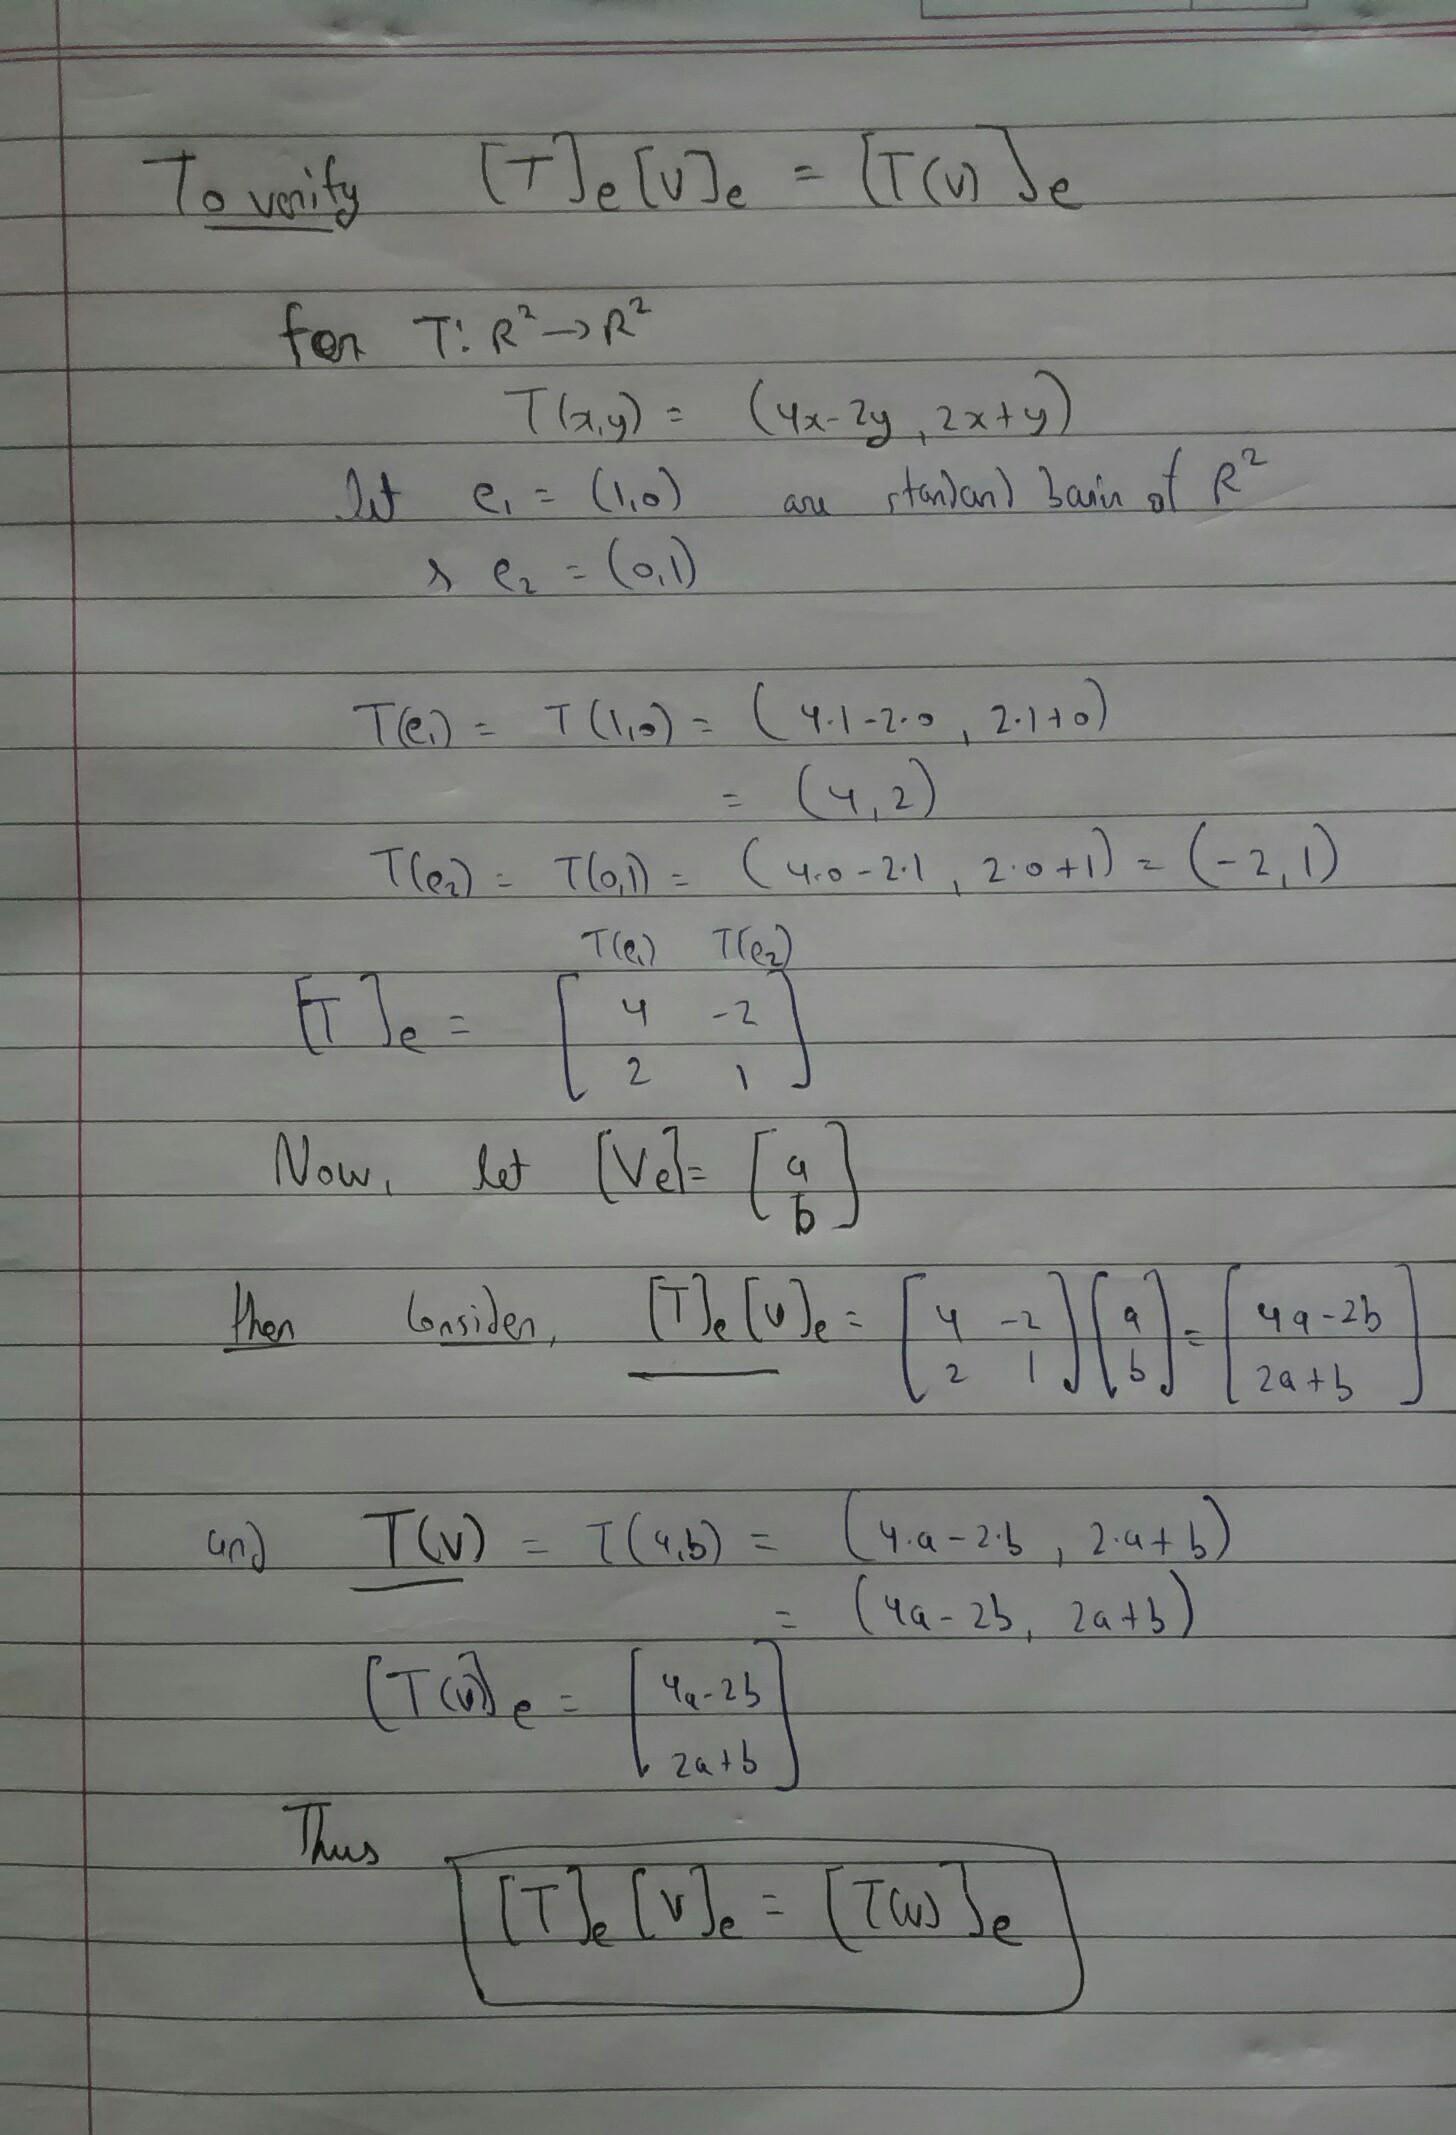 To verify [T]e [v]e = [T(v)]e
for T: R² → R²
T(x,y) = (4x-2y, 2x+y)
let e₁ = (1,0) are standard basis of R²
& e₂ = (0,1)
T(e₁) = T(1,0) = (4·1-2·0, 2·1+0)
= (4,2)
T(e₂) = T(0,1) = (4·0-2·1, 2·0+1) = (-2,1)
T(e₁) T(e₂)
[T]e = [4 -2
2 1]
Now, let [Ve] = [a
b]
then Consider, [T]e [v]e = [4 -2 ] [a] = [4a-2b
2 1 b 2a+b]
and T(v) = T(a,b) = (4·a-2·b, 2·a+b)
= (4a-2b, 2a+b)
[T(v)]e = [4a-2b
2a+b]
Thus
[T]e [v]e = [T(v)]e